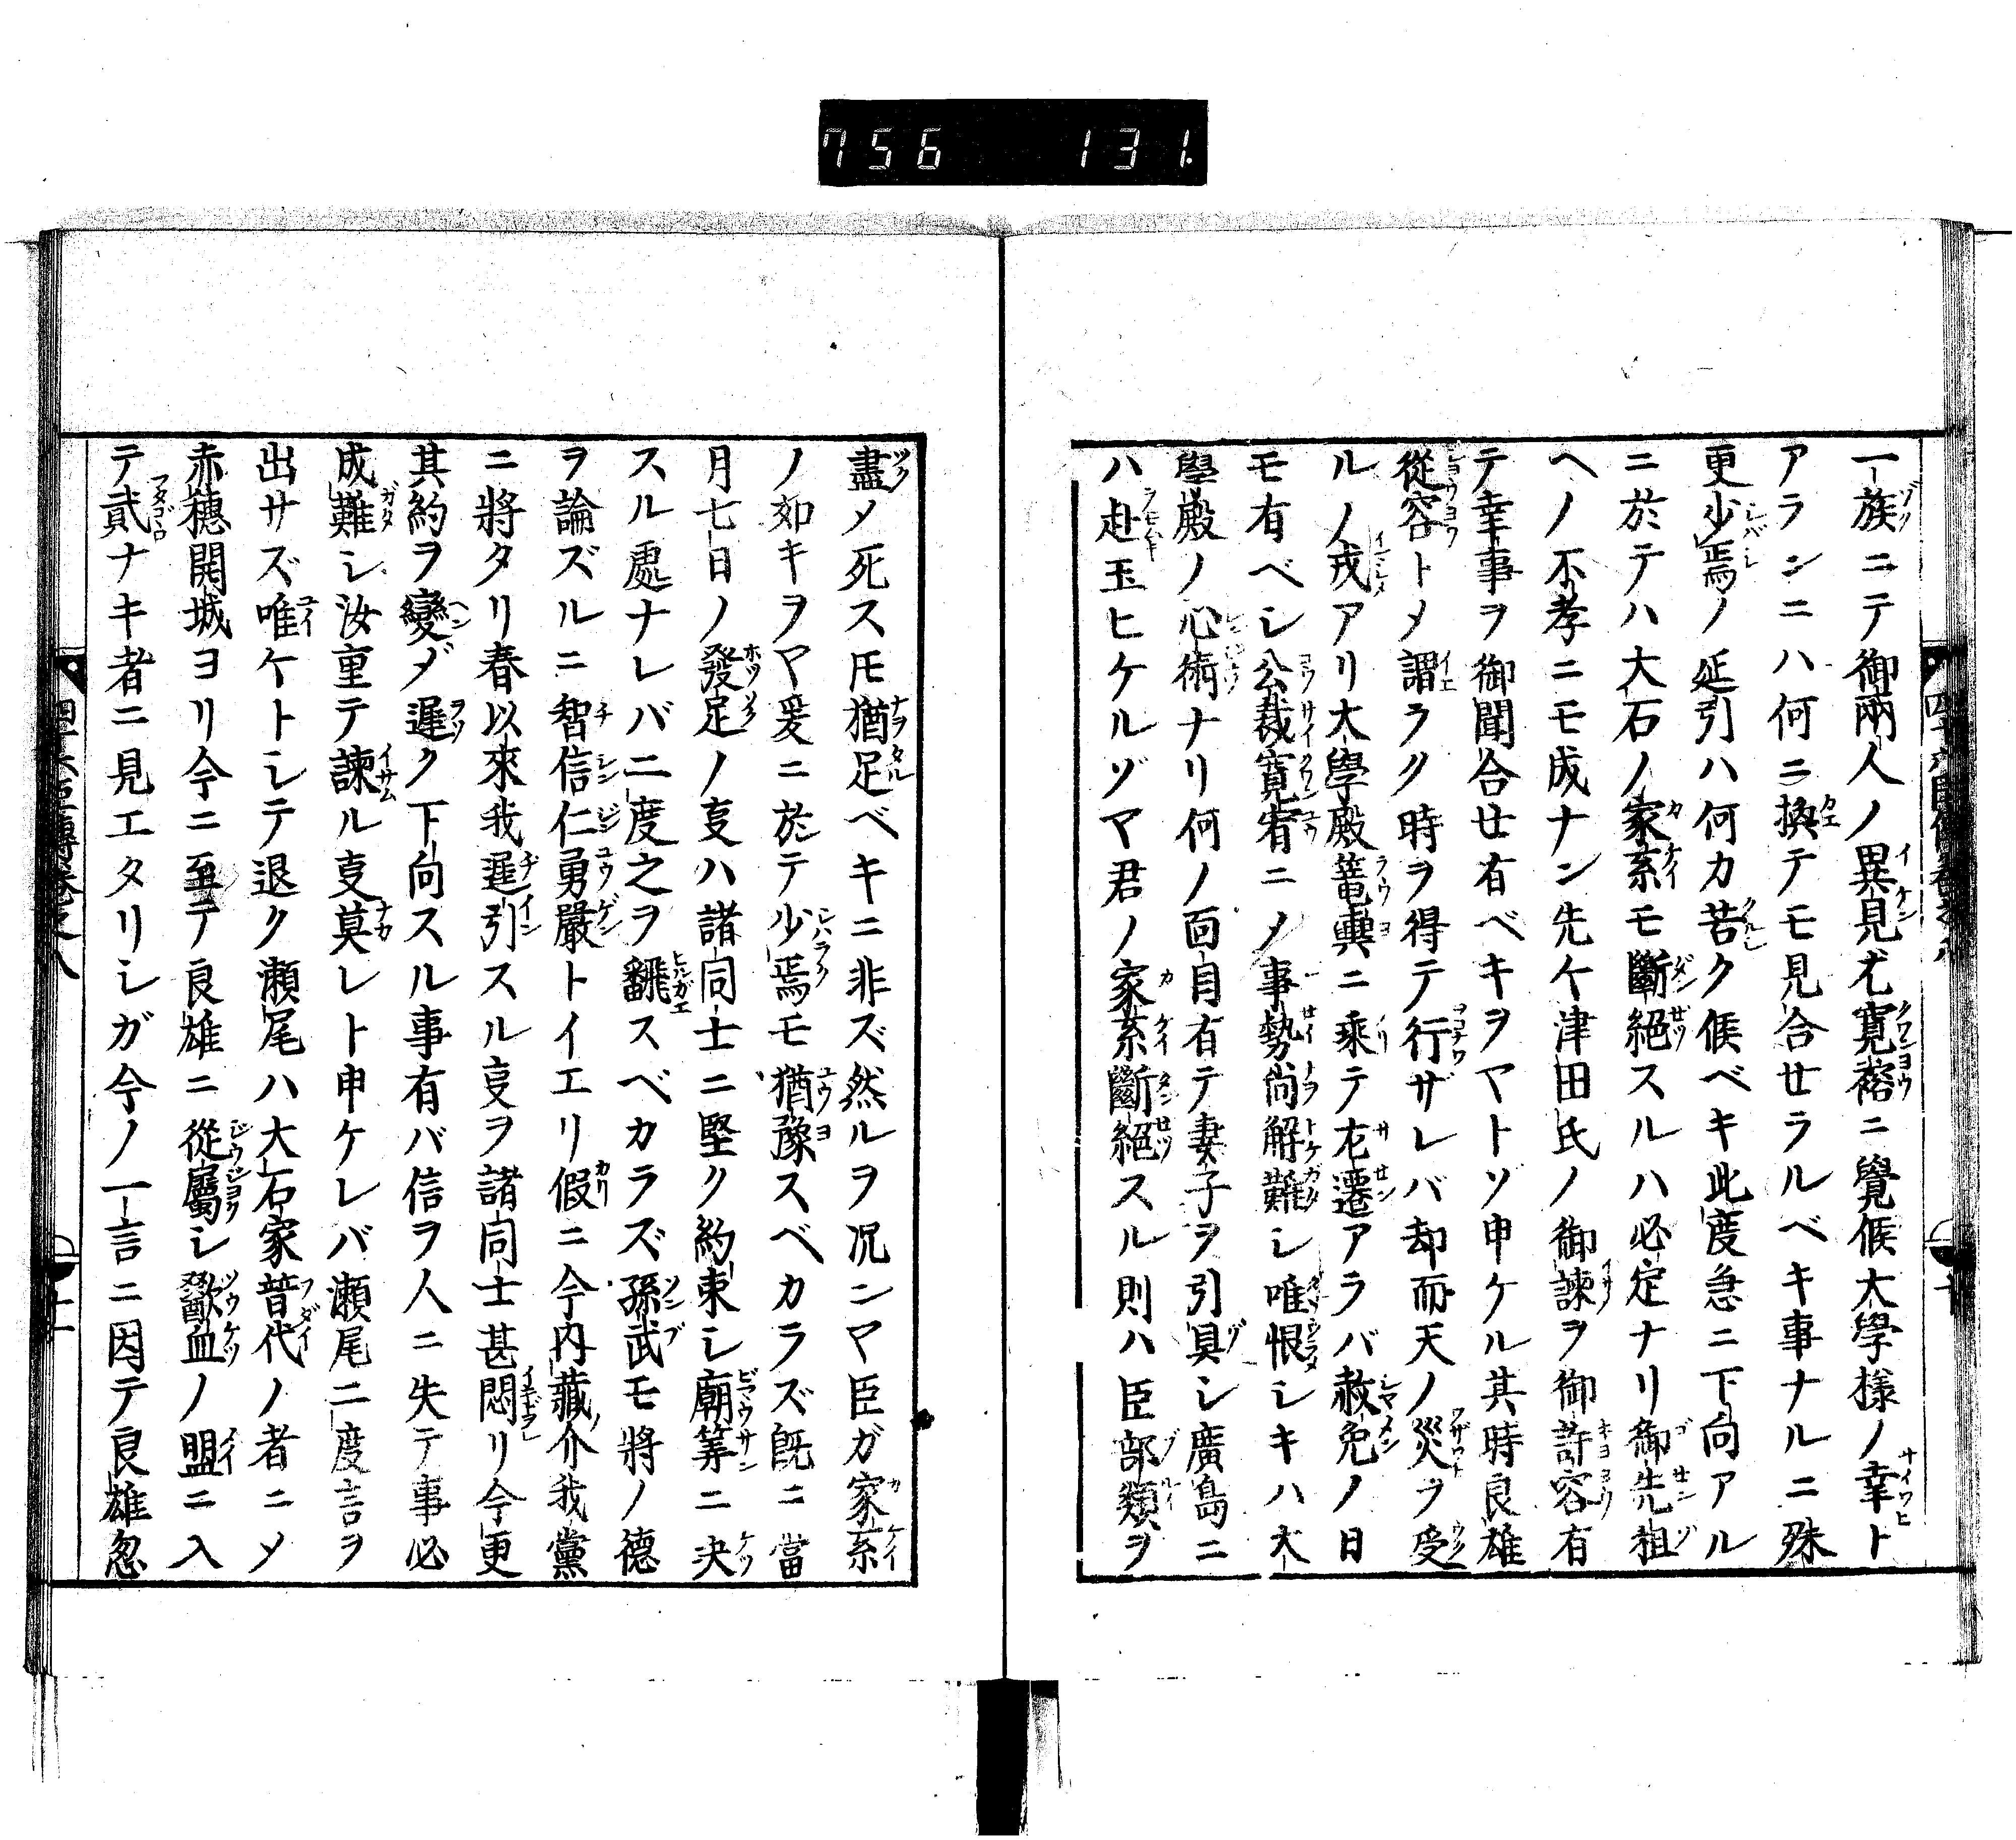 756 131.
一族ニテ御兩人ノ異見尤寛裕ニ覺候大學樣ノ幸ト
アランニハ何ニ換テモ見合セラルベキ事ナルニ殊
更少焉ノ延引ハ何カ苦ク候ベキ此度急ニ下向アル
ニ於テハ大石ノ家系モ斷絕スルハ必定ナリ御先祖
ヘノ不孝ニモ成ナン先ケ津田氏ノ御諫ヲ御許容有
テ幸事ヲ御聞合セ有ベキヲヤトゾ申ケル其時良雄
從容トメ謂ラク時ヲ得テ行ザレバ却而天ノ災ヲ受
ルノ戎アリ大學殿篭輿ニ乘テ左遷アラバ赦免ノ日
モ有ベシ公裁寛宥ニメ事勢尚解難シ唯恨シキハ大
學殿ノ心術ナリ何ノ面目有テ妻子ヲ引具シ廣島ニ
ハ赴玉ヒケルゾヤ君ノ家系斷絕スル則ハ臣部類ヲ
盡メ死スモ猶足ベキニ非ズ然ルヲ况ンヤ臣ガ家系
ノ如キヲヤ爰ニ於テ少焉モ猶豫スベカラズ既ニ當
月七日ノ發足ノ叓ハ諸同士ニ堅ク約束シ廟筭ニ决
スル處ナレバ二度之ヲ飜スベカラズ孫武モ將ノ德
ヲ論ズルニ智信仁勇嚴トイエリ假ニ今内藏介我黨
ニ將タリ春以來我遲引スル叓ヲ諸同士甚悶リ今更
其約ヲ變ジ遲ク下向スル事有バ信ヲ人ニ失テ事必
成難シ汝重テ諫ル叓莫レト申ケレバ瀬尾二度言ヲ
出サズ唯ケトシテ退ク瀬尾ハ大石家普代ノ者ニメ
赤穗開城ヨリ今ニ至テ良雄ニ從屬シ歃血ノ盟ニ入
テ貳ナキ者ニ見エタリシガ今ノ一言ニ因テ良雄忽